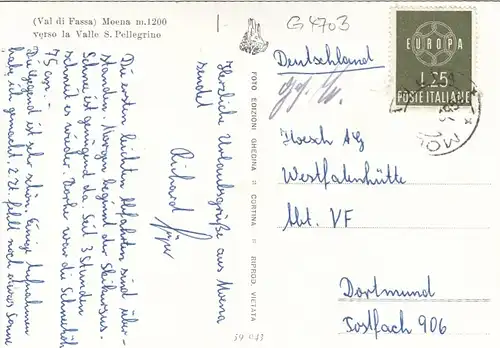 (Val di Fassa) Moena m.1200
verso la Valle S. Pellegrino
G 4703
Deutschland
EUROPA
L.25
POSTE ITALIANE
FOTO EDIZIONI GHEDINA CORTINA RIPROD. VIETATA
Hoesch AG
Westfalenhütte
Abt. VF
Dortmund
Postfach 906
Herzliche Urlaubsgrüße aus Moena
sendet
Richard
Die ersten leichten Abfahrten sind über-
standen. Morgen beginnt der Skikursus.
Schnee ist genügend da. Seit 3 Stunden
schneit es wieder. Vorher war die Schneehöh
75 cm.-
Die Gegend ist sehr schön. Einige Aufnahmen
habe ich gemacht. Z.Zt. fehlt noch etwas Sonne